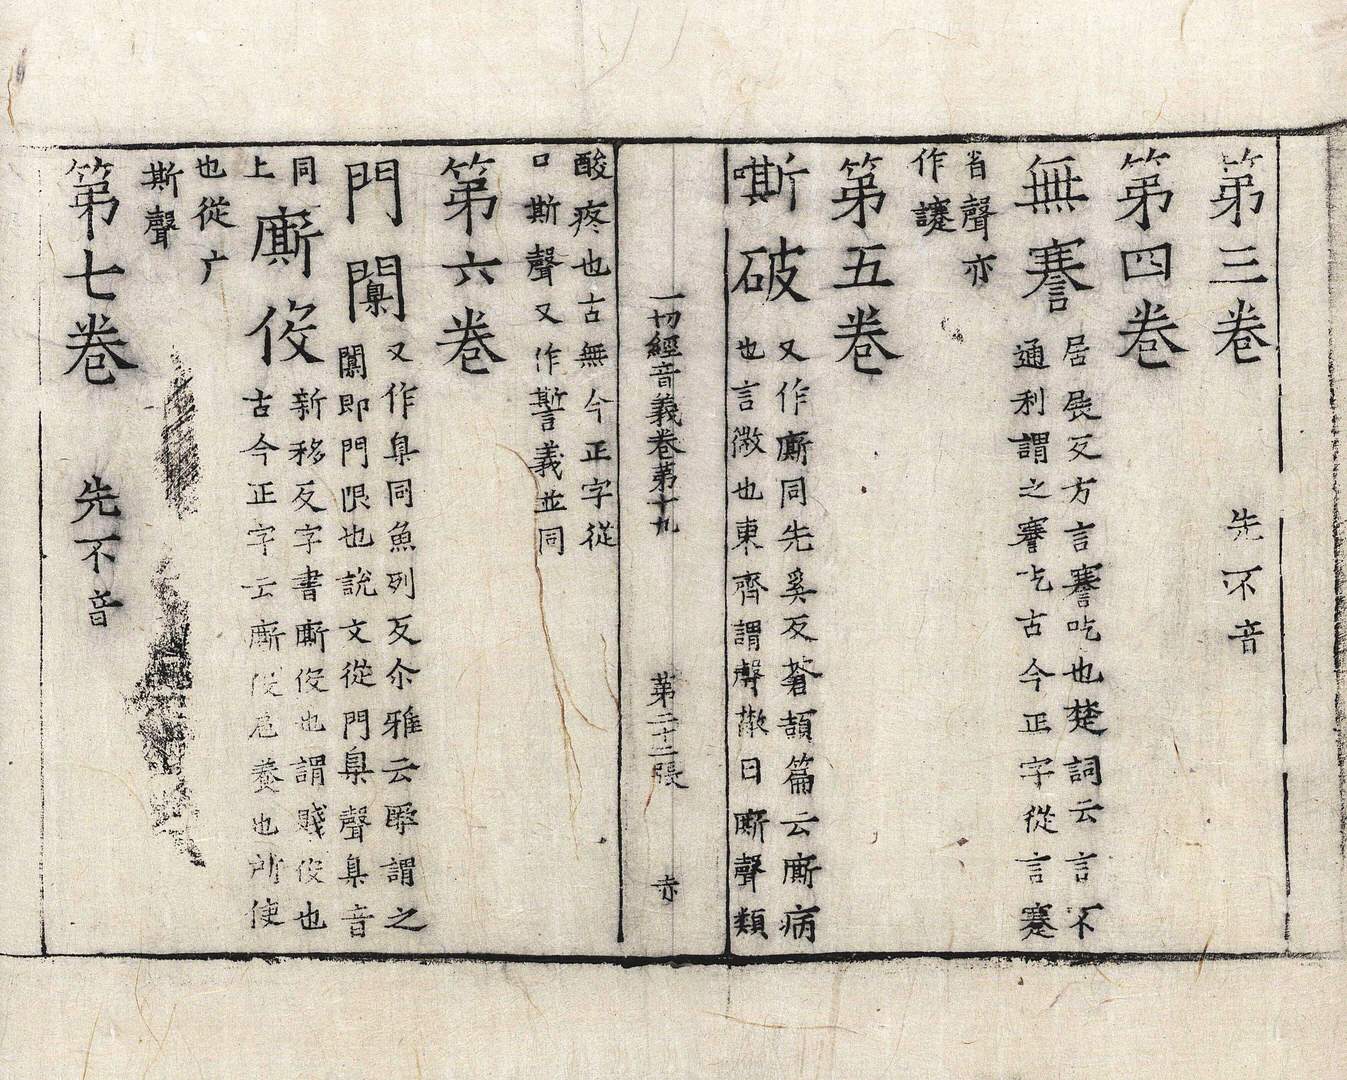 第三卷 先不音
第四卷
無謇
居展反方言謇吃也楚詞云言不
通利謂之謇吃古今正字從言蹇
省聲亦
作讓
第五卷
嘶破
又作廝同先奚反蒼頡篇云廝病
也言微也東齊謂聲散曰廝聲類
一切經音義卷第十九 第二十二張 赤
酸疼也古無今正字從
口斯聲又作誓義並同
第六卷
門闑
又作臬同魚列反尒雅云謂之
闑即門限也說文從門臬聲臬音
同
上
廝伇
新移反字書廝伇也謂賤伇也
古今正字云廝伇㢑養也所使
也從广
斯聲
第七卷 先不音